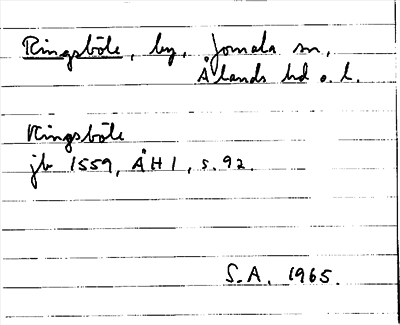 Ringsböle, by, Jomala sn,
Ålands hd o. l.
Ringsböle
jb 1559, ÅH 1, s. 92.
S.A. 1965.